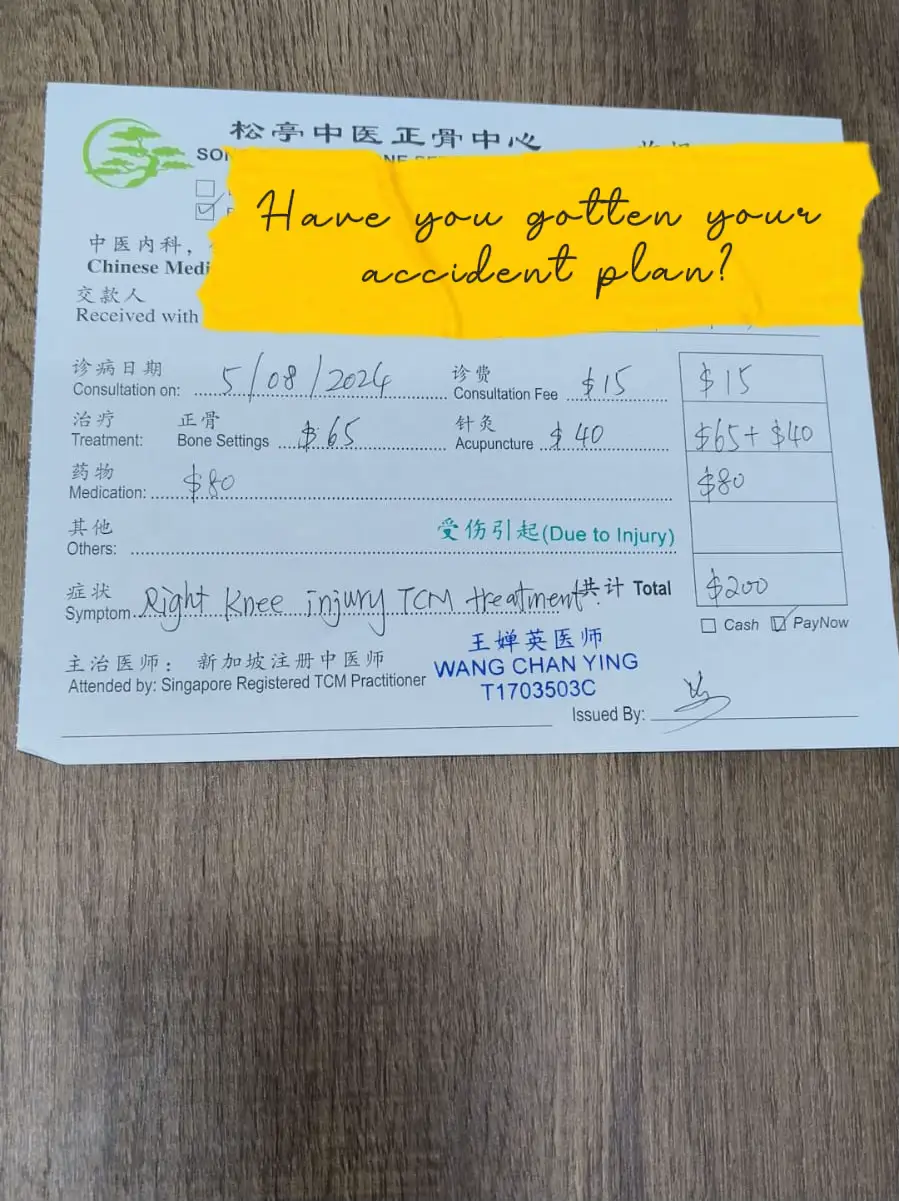 松亭中医正骨中心
Have you gotten your
accident plan?
中医内科，
Chinese Medi
交款人
Received with
诊病日期 诊费
Consultation on: 5/08/2024 Consultation Fee $15 $15
治疗 正骨 针灸
Treatment: Bone Settings $65 Acupuncture $40 $65 + $40
药物
Medication: $80 $80
其他 受伤引起(Due to Injury)
Others:
症状
Symptom Right Knee injury TCM treatment. 共计 Total $200
Cash PayNow
主治医师： 新加坡注册中医师 王婵英医师
Attended by: Singapore Registered TCM Practitioner WANG CHAN YING
T1703503C
Issued By: